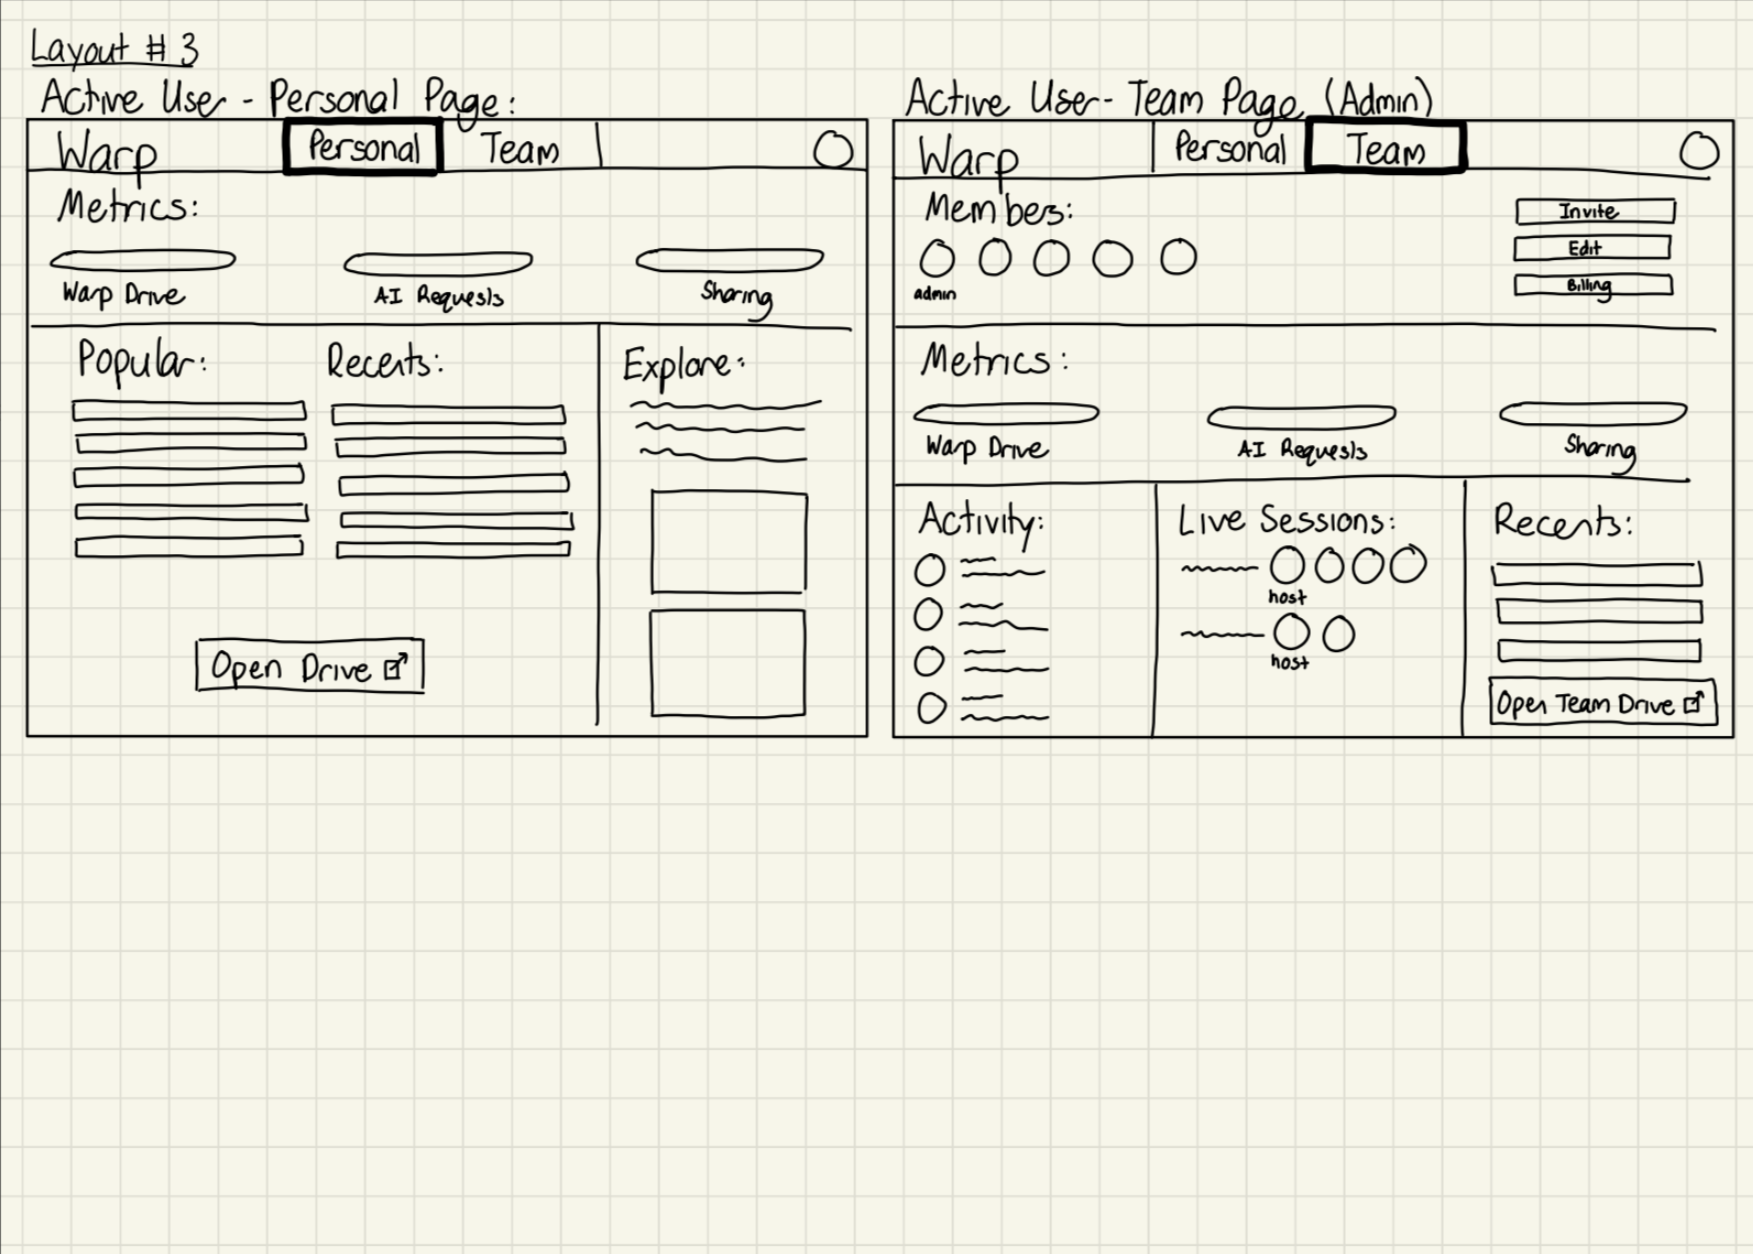 Layout # 3
Active User - Personal Page:
Warp Personal Team
Metrics:
Warp Drive AI Requests Sharing
Popular: Recents: Explore:
Open Drive
Active User - Team Page (Admin)
Warp Personal Team
Members:
Invite
Edit
Billing
admin
Metrics:
Warp Drive AI Requests Sharing
Activity: Live Sessions: Recents:
host
host
Open Team Drive